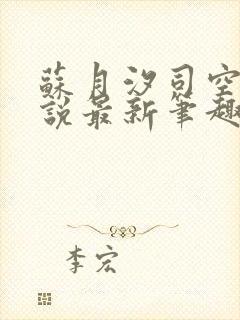 蘇月汐司空
說最新筆趣
李宏